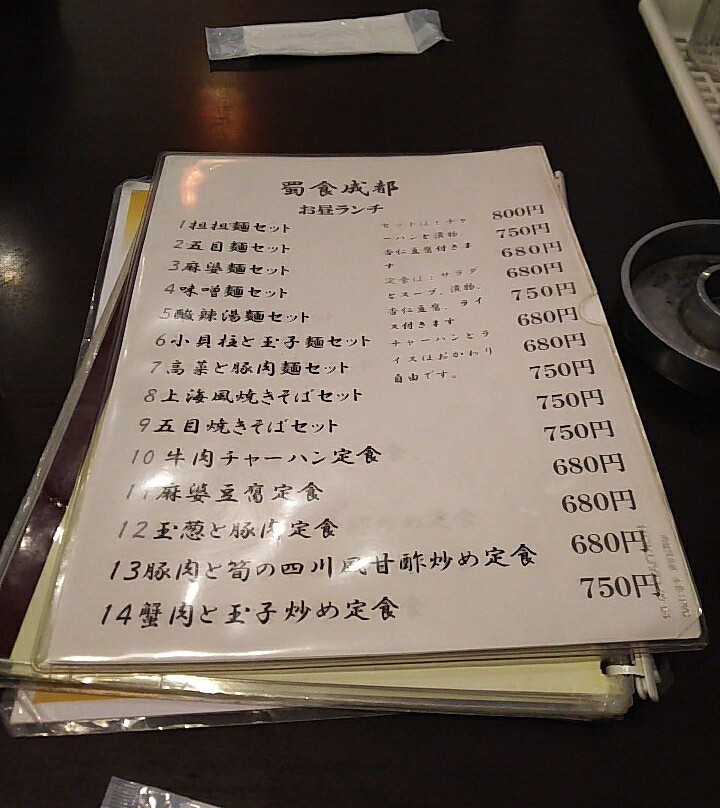 蜀食成都
お昼ランチ
1担担麺セット 800円
2五目麺セット 750円
3麻婆麺セット 680円
4味噌麺セット 680円
5酸辣湯麺セット 750円
6小貝柱と玉子麺セット 680円
7高菜と豚肉麺セット 680円
8上海風焼きそばセット 750円
9五目焼きそばセット 750円
10牛肉チャーハン定食 750円
11麻婆豆腐定食 680円
12玉葱と豚肉定食 680円
13豚肉と筍の四川風甘酢炒め定食 680円
14蟹肉と玉子炒め定食 750円
セットは：チャ
ーハンと漬物、
杏仁豆腐付きま
す
定食は：サラダ
とスープ、漬物、
杏仁豆腐、ライ
ス付きます
チャーハンとラ
イスはおかわり
自由です。